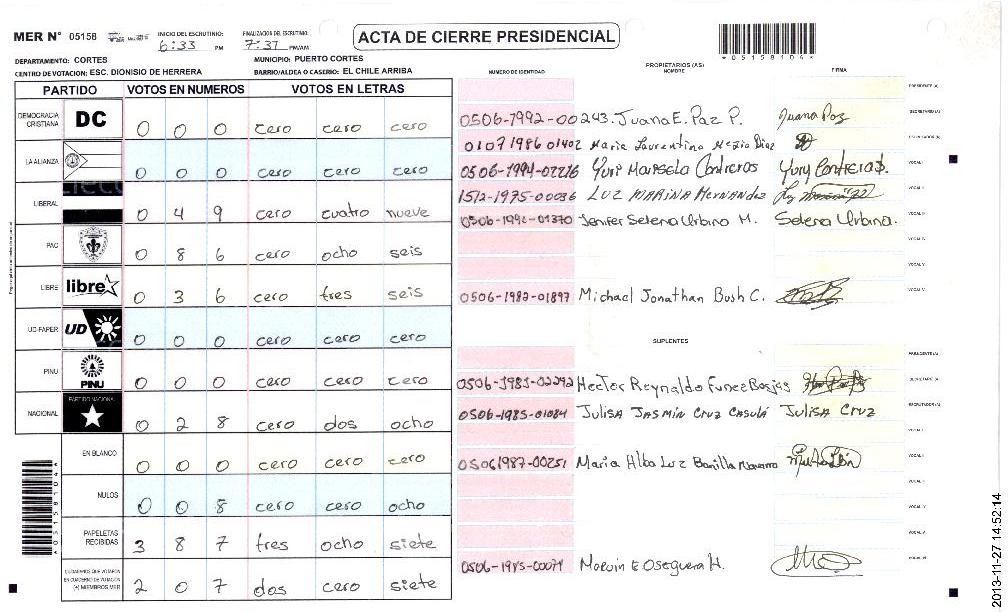 MER N° 05158
INICIO DEL ESCRUTINIO: 6:33 PM
FINALIZACION DEL ESCRUTINIO: 7:37 PM/AM
ACTA DE CIERRE PRESIDENCIAL
*05158104*
DEPARTAMENTO: CORTES
MUNICIPIO: PUERTO CORTES
CENTRO DE VOTACION: ESC. DIONISIO DE HERRERA
BARRIO/ALDEA O CASERIO: EL CHILE ARRIBA
PARTIDO VOTOS EN NUMEROS VOTOS EN LETRAS
DEMOCRACIA CRISTIANA DC 0 0 0 cero cero cero
LA ALIANZA 0 0 0 cero cero cero
LIBERAL 0 4 9 cero cuatro nueve
PAC 0 8 6 cero ocho seis
LIBRE libre 0 3 6 cero tres seis
UD-FAPER UD 0 0 0 cero cero cero
PINU PINU 0 0 0 cero cero cero
NACIONAL PARTIDO NACIONAL 0 2 8 cero dos ocho
EN BLANCO 0 0 0 cero cero cero
NULOS 0 0 8 cero cero ocho
PAPELETAS RECIBIDAS 3 8 7 tres ocho siete
CIUDADANOS QUE VOTARON EN CUADERNO DE VOTACION (+) MIEMBROS MER 2 0 7 dos cero siete
NUMERO DE IDENTIDAD PROPIETARIOS (AS) NOMBRE FIRMA
PRESIDENTE (A)
0506-1992-00243. Juana E. Paz P. Juana Paz SECRETARIO (A)
0107 1986 01402 Maria ESCRUTADOR (A)
0506-1994-02226 Yuri Marisela Contreras Yury Contreras. VOCAL I
1512-1975-00036 LUZ MARINA HERNANDEZ VOCAL II
0506-1992-01370 Jenifer Selena Urbina M. Selena Urbina. VOCAL III
VOCAL IV
VOCAL V
0506-1982-01897 Michael Jonathan Bush C. VOCAL VI
SUPLENTES
PRESIDENTE (A)
0506-1983-02292 Hector Reynaldo Funez SECRETARIO (A)
0506-1985-01084 Julisa Jasmin Cruz Julisa Cruz ESCRUTADOR (A)
VOCAL I
05061987-00251 Maria Alba Luz Bonilla Navarro VOCAL II
VOCAL III
VOCAL IV
VOCAL V
0506-1985-00071 Marvin E Oseguera H. VOCAL VI
2013-11-27 14:52:14